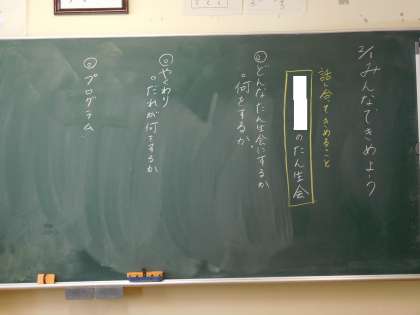 2/1 みんなできめよう
話し合ってきめること
のたん生会
◎どんなたん生会にするか
○何をするか。
◎やくわり
○だれが何をするか
◎プログラム